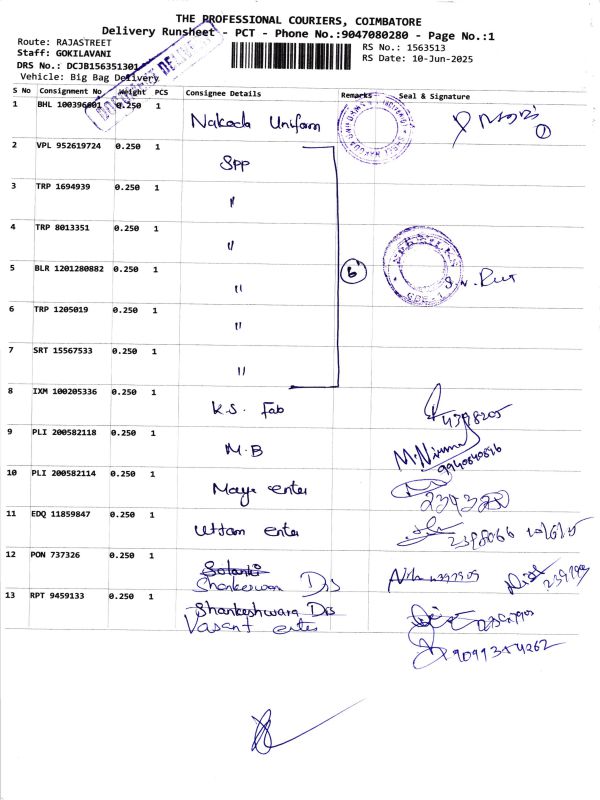 THE PROFESSIONAL COURIERS, COIMBATORE
Delivery Runsheet - PCT - Phone No.:9047080280 - Page No.:1
Route: RAJASTREET
RS No.: 1563513
Staff: GOKILAVANI
RS Date: 10-Jun-2025
DRS No.: DCJB156351301
Vehicle: Big Bag Delivery
S No Consignment No Weight PCS Consignee Details Remarks Seal & Signature
1 BHL 100396001 0.250 1 Nakoda Uniform
1
2 VPL 952619724 0.250 1 SPP
3 TRP 1694939 0.250 1 "
4 TRP 8013351 0.250 1 "
5 BLR 1201280882 0.250 1 " 6
6 TRP 1205019 0.250 1 "
7 SRT 15567533 0.250 1 "
8 IXM 100205336 0.250 1 K.S. Fab 4398205
9 PLI 200582118 0.250 1 M.B M.Nirmal
10 PLI 200582114 0.250 1 Maya enter
11 EDQ 11859847 0.250 1 Uttam enter
12 PON 737326 0.250 1 Solanki
Shankeswar Drs
13 RPT 9459133 0.250 1 Shankeshwara Drs
Vasant enter